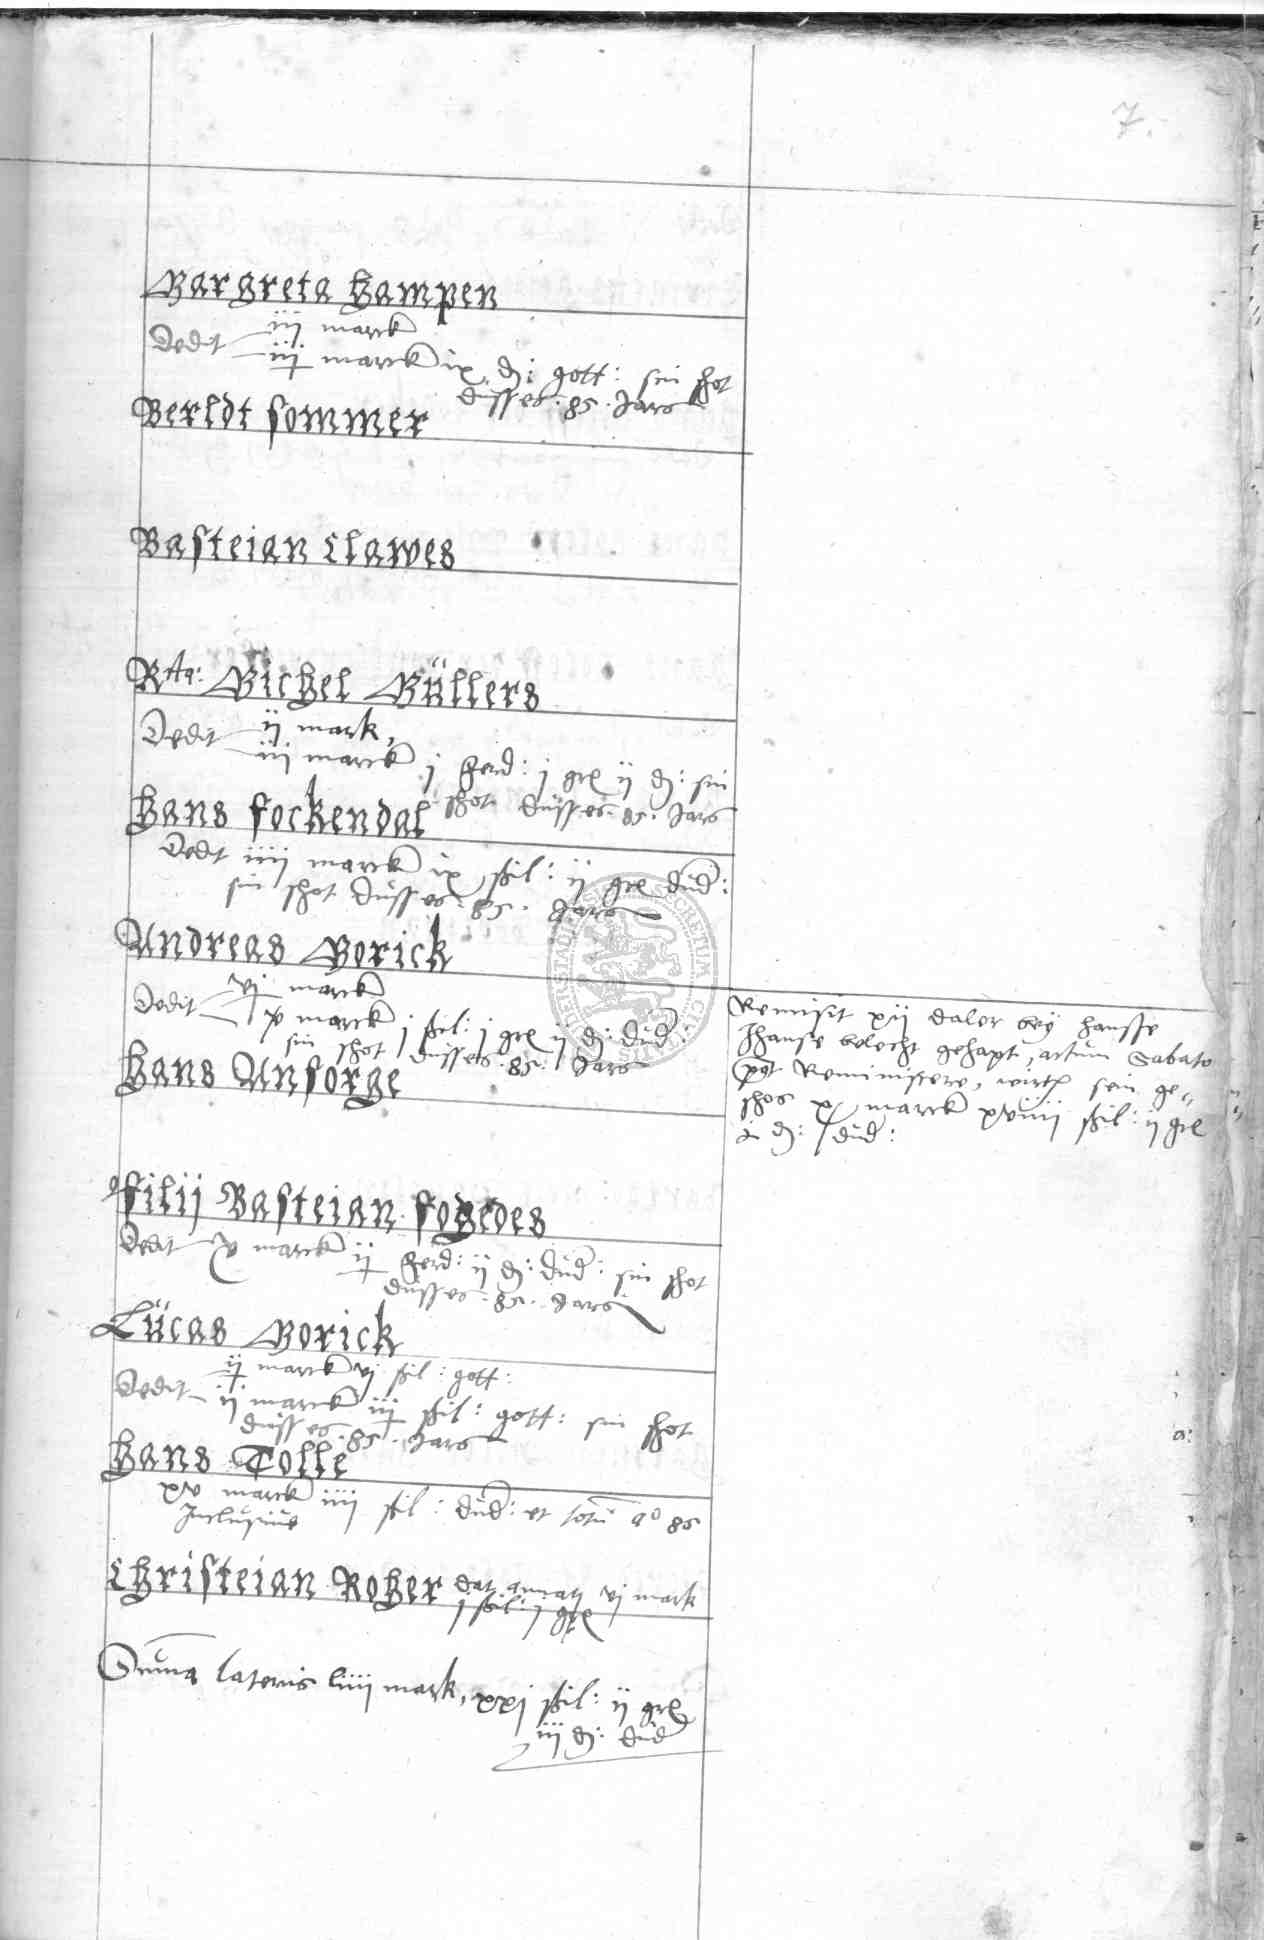 7.
Margreta Hampen
iij marck
Dedit iiij marck ix d: gott: sin shot
dusses .85. Jars
Berldt Sommer
Basteian Clawes
Rta: Michel Müllers
ij mark,
Dedit iij marck j ferd: j grl ij d: sin
shot dusses .85. Jars
Hans Fockendal
Dedit iiij marck ix shil: ij grl dud:
sin shot dusses .85. Jars
Andreas Morick
vj marck
Dedit v marck j shil: j grl ij d: dud:
sin shot dusses .85. Jars
Hans Unsorge
Remisit xij daler bey Hansse
Hanse belecht gehapt, actum Sabato
post Reminiscere, wirt sein ge=
shos x marck xviiij shil: ij grl
d: dud:
Filij Basteian Fogedes
Dedit v marck ij ferd: ij d: dud: sin shot
dusses .85. Jars
Lücas Morick
ij marck vj shil: gott:
Dedit ij marck iij shil: gott: sin shot
dusses .85. Jars
Hans Tolle
xv marck iiij shil: dud: et totu ao 86
Inclusive
Christeian Roher dat vj mark
j shil: j grl
Suma lateris liiij mark, xxj shil: ij grl
iij d: dud